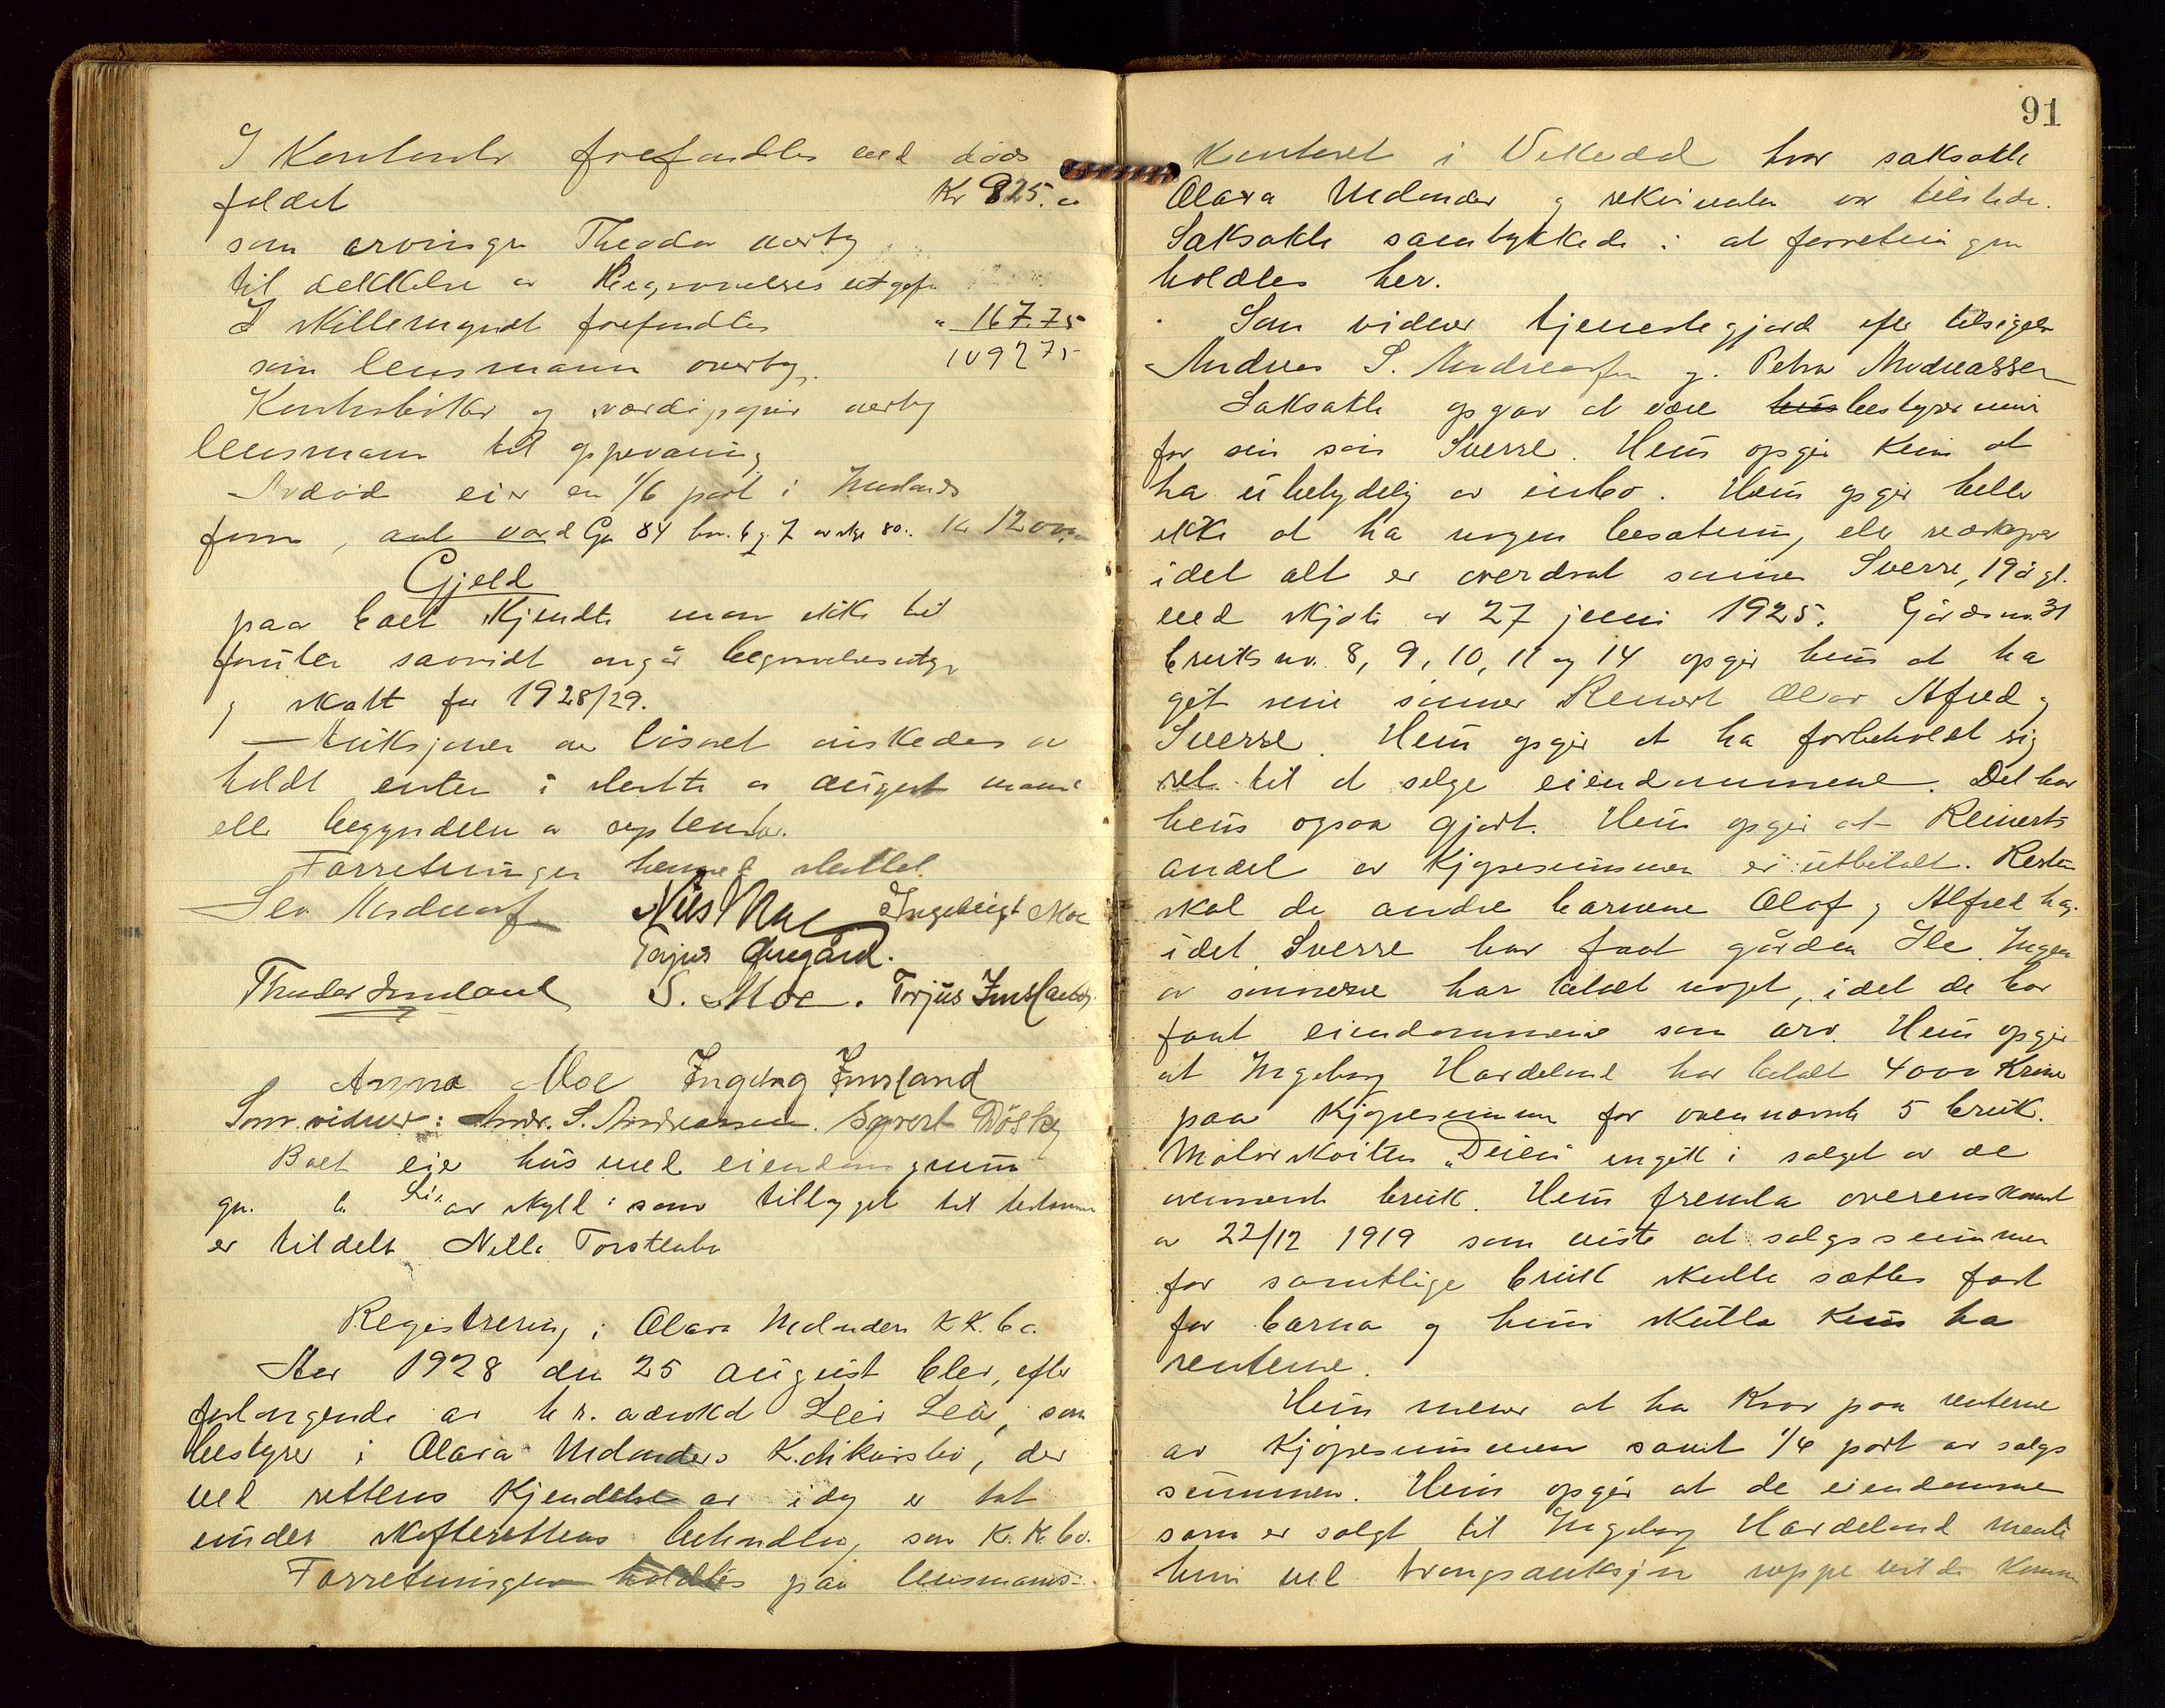 I Kontanter forefandtes ved døds
faldet Kr 825.
som arvinger Theodor overtog
til dekkelse av Begravelses utgifter
I skillemynt forefandtes " 167.75
som lensmann overtog. 109275
Kontrabøker og værdipapir overtog
lensmann til oppevaring
Avdød eier en 1/6 part i Imslands
Gn 84 bn. 6 og 7 av skyl 80. Kr 1200
Gjeld
paa boet kjendte man ikke til
foruten saavidt angår begravelsesutg.
og skatt for 1928/29.
Auksjonen over løsøret ønskedes
holdt enten i slutten av august maned
eller begyndelsen av september.
Forretningen hermed sluttet
Nils Moe Ingebrigt Moe
Torjus Øvregård.
Theodor Imsland S. Moe. Torjus Imsland
Anna Moe Ingeborg Imsland
Som vidner: Andr. S. Andreassen. Sivert
Boet eier hus med eiendomsgrunn
gn. b. av skyld: som tillegget til
er tildelt Nella
Registrering i Olava Melanders KK. bo.
Aar 1928 den 25 august blev, efter
forlangende av h r. advokat Leir som
bestyrer i Olava Melanders Konkursbo, der
ved rettens Kjendelse av idag er tat
under skifterettens behandling som K.K. bo.
Forretningen holdtes paa lensmans-
91
Kontoret i Vikedal hvor saksøkte
Olava Melander og rekvirenten var tilstede.
Saksøkte samtykkede i at forretningen
holdtes her.
Som vidner tjenestegjord efter tilsigelse
Andreas S. Andreassen og Petra Andreassen
Saksøkte opgav at være bestyrerinne
for sin søn Sverre. Hun opgir kun at
ha ubetydelig av innbo. Hun opgir heller
ikke at ha nogen besætning eller redskaper
idet alt er overdrat sønnen Sverre, 19 år gl.
ved skjøte av 27 juni 1925. Gårdsnr. 31
bruksnr. 8, 9, 10, 11 og 14 opgir hun at ha
git sine sønner Reinert Olav Alfred og
Sverre. Hun opgir at ha forbeholdt sig
ret til at selge eiendommene. Det har
hun ogsaa gjort. Hun opgir at Reinerts
andel av kjøpesummen er utbetalt. Resten
skal de andre barnene Olaf og Alfred ha,
idet Sverre har faat gården Ile. Ingen
av sønnene har betalt noget, idet de har
faat eiendommene som arv. Hun opgir
at Ingeborg Hardeland har betalt 4000 Kroner
paa kjøpesummen for ovennævnte 5 bruk.
Motorskøiten „ inngikk i salget av de
ovennevnte bruk. Hun fremla overenskomst
av 22/12 1919 som viste at salgssummen
for samtlige bruk skulle sættes fast
for barna og hun skulle kun ha
renterne.
Hun mener at ha Krav paa renterne
av Kjøpesummen samt 1/4 part av salgs
summen. Hun opgir at de eiendomme
som er solgt til Ingeborg Hardeland mente
hun ved tvangsauksjon neppe vilde komme